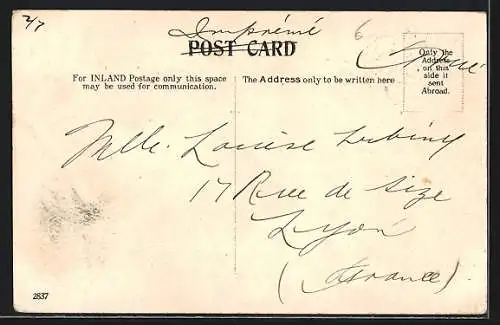 2/7
Imprimé
6
POST CARD
For INLAND Postage only this space
may be used for communication.
The Address only to be written here
Only the
Address
on this
side if
sent
Abroad.
Mlle. Louise
17 Rue de Size
Lyon
(France)
2837